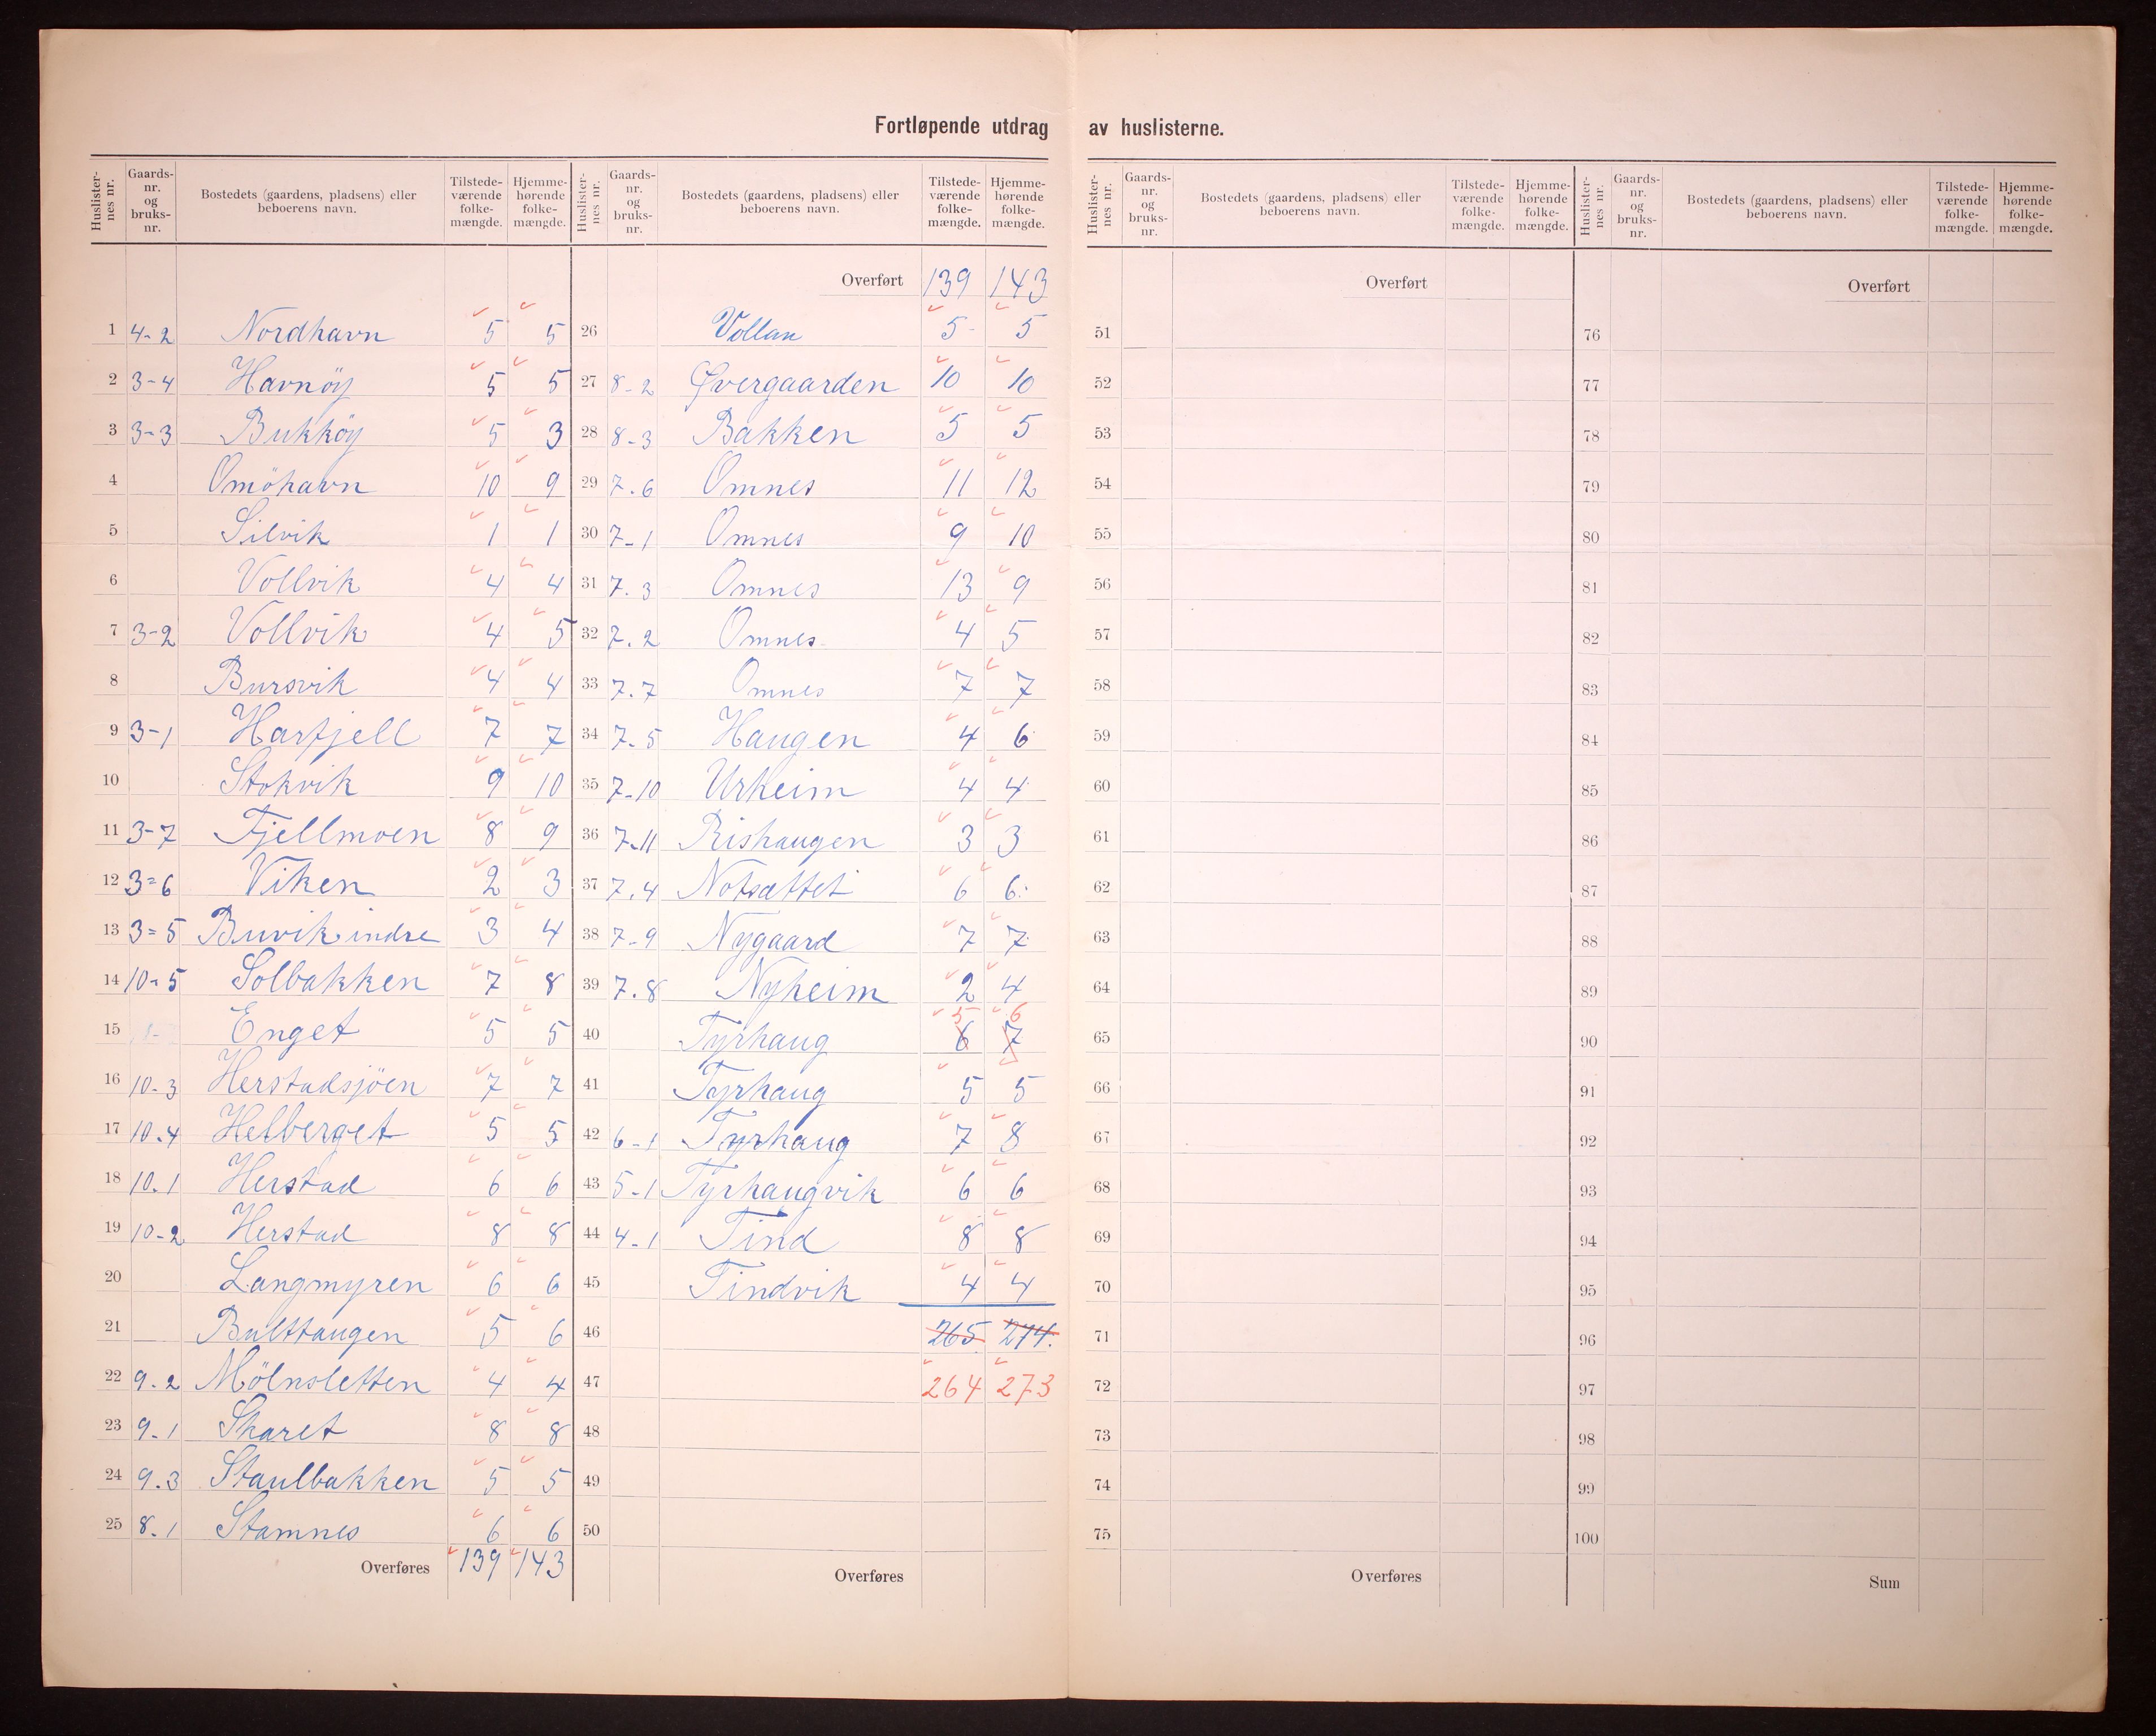 Fortløpende utdrag av huslisterne.
Huslisternes nr. Gaards-nr. og bruks-nr. Bostedets (gaardens, pladsens) eller beboerens navn. Tilstedeværende folkemængde. Hjemmehørende folkemængde.
1 4-2 Nordhavn 5 5
2 3-4 Havnöy 5 5
3 3-3 Bukköy 5 3
4 Omöhavn 10 9
5 Silvik 1 1
6 Vollvik 4 4
7 3-2 Vollvik 4 5
8 Bursvik 4 4
9 3-1 Harfjell 7 7
10 Stokvik 9 10
11 3-7 Fjellmoen 8 9
12 3=6 Viken 2 3
13 3=5 Buvik indre 3 4
14 10-5 Solbakken 7 8
15 Enget 5 5
16 10-3 Herstadsjöen 7 7
17 10.4 Helberget 5 5
18 10.1 Herstad 6 6
19 10-2 Herstad 8 8
20 Langmyren 6 6
21 Bulthaugen 5 6
22 9.2 Mölnsletten 4 4
23 9-1 Skaret 8 8
24 9.3 Staulbakken 5 5
25 8.1 Stamnes 6 6
Overføres 139 143
Huslisternes nr. Gaards-nr. og bruks-nr. Bostedets (gaardens, pladsens) eller beboerens navn. Tilstedeværende folkemængde. Hjemmehørende folkemængde.
Overført 139 143
26 Vollan 5 5
27 8-2 Øvergaarden 10 10
28 8-3 Bakken 5 5
29 7.6 Omnes 11 12
30 7-1 Omnes 9 10
31 7.3 Omnes 13 9
32 7.2 Omnes 4 5
33 7.7 Omnes 7 7
34 7-5 Haugen 4 6
35 7-10 Urheim 4 4
36 7-11 Rishaugen 3 3
37 7.4 Notsættet 6 6
38 7-9 Nygaard 7 7
39 7.8 Nyheim 2 4
5 6
40 Tyrhaug 6 7
41 Tyrhaug 5 5
42 6-1 Tyrhaug 7 8
43 5-1 Tyrhaugvik 6 6
44 4-1 Tind 8 8
45 Tindvik 4 4
46 265 274.
47 264 273
48
49
50
Overføres
Huslisternes nr. Gaards-nr. og bruks-nr. Bostedets (gaardens, pladsens) eller beboerens navn. Tilstedeværende folkemængde. Hjemmehørende folkemængde.
Overført
51
52
53
54
55
56
57
58
59
60
61
62
63
64
65
66
67
68
69
70
71
72
73
74
75
Overføres
Huslisternes nr. Gaards-nr. og bruks-nr. Bostedets (gaardens, pladsens) eller beboerens navn. Tilstedeværende folkemængde. Hjemmehørende folkemængde.
Overført
76
77
78
79
80
81
82
83
84
85
86
87
88
89
90
91
92
93
94
95
96
97
98
99
100
Sum